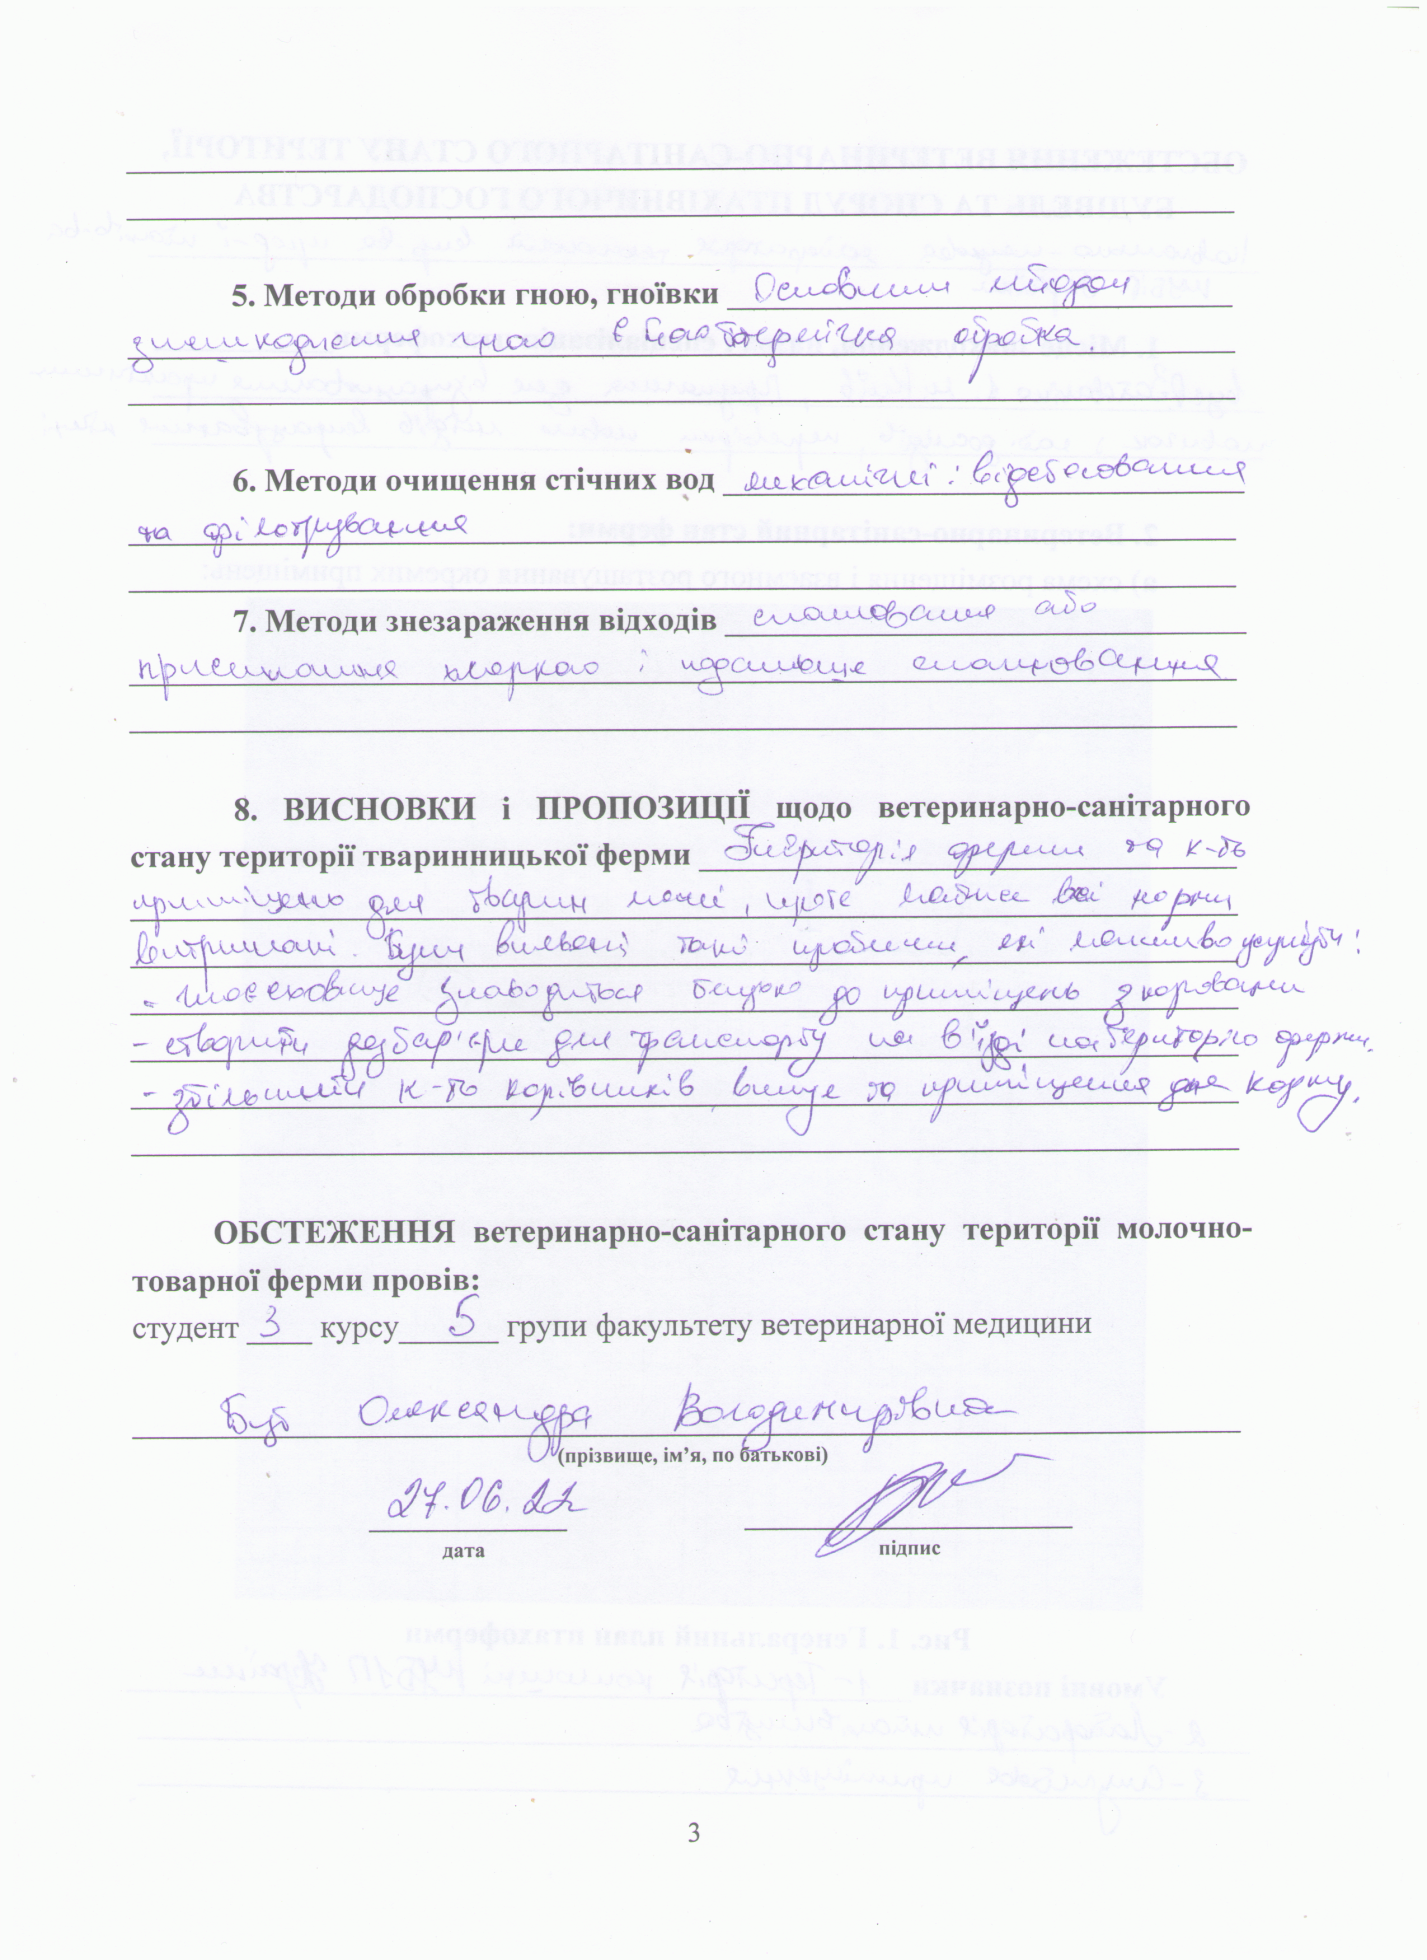 5. Методи обробки гною, гноївки Основним методом
знешкодження гною є біотермічна обробка.
6. Методи очищення стічних вод механічні: відстоювання
та фільтрування
7. Методи знезараження відходів спалювання або
присипання хлоркою і подальше спалювання
8. ВИСНОВКИ і ПРОПОЗИЦІЇ щодо ветеринарно-санітарного
стану території тваринницької ферми Територія ферми та к-ть
приміщень для тварин малі, проте майже всі норми
витримані. Були виявлені такі проблеми, які можливо усунути:
- гноєсховище знаходиться близько до приміщень з коровами
- створити дезбар'єри для транспорту на в'їзді на територію ферми.
- збільшити к-ть корівників, вище та приміщення для корму.
ОБСТЕЖЕННЯ ветеринарно-санітарного стану території молочно-
товарної ферми провів:
студент 3 курсу 5 групи факультету ветеринарної медицини
Буб Олександра Володимирівна
(прізвище, ім’я, по батькові)
27.06.22
дата підпис
3